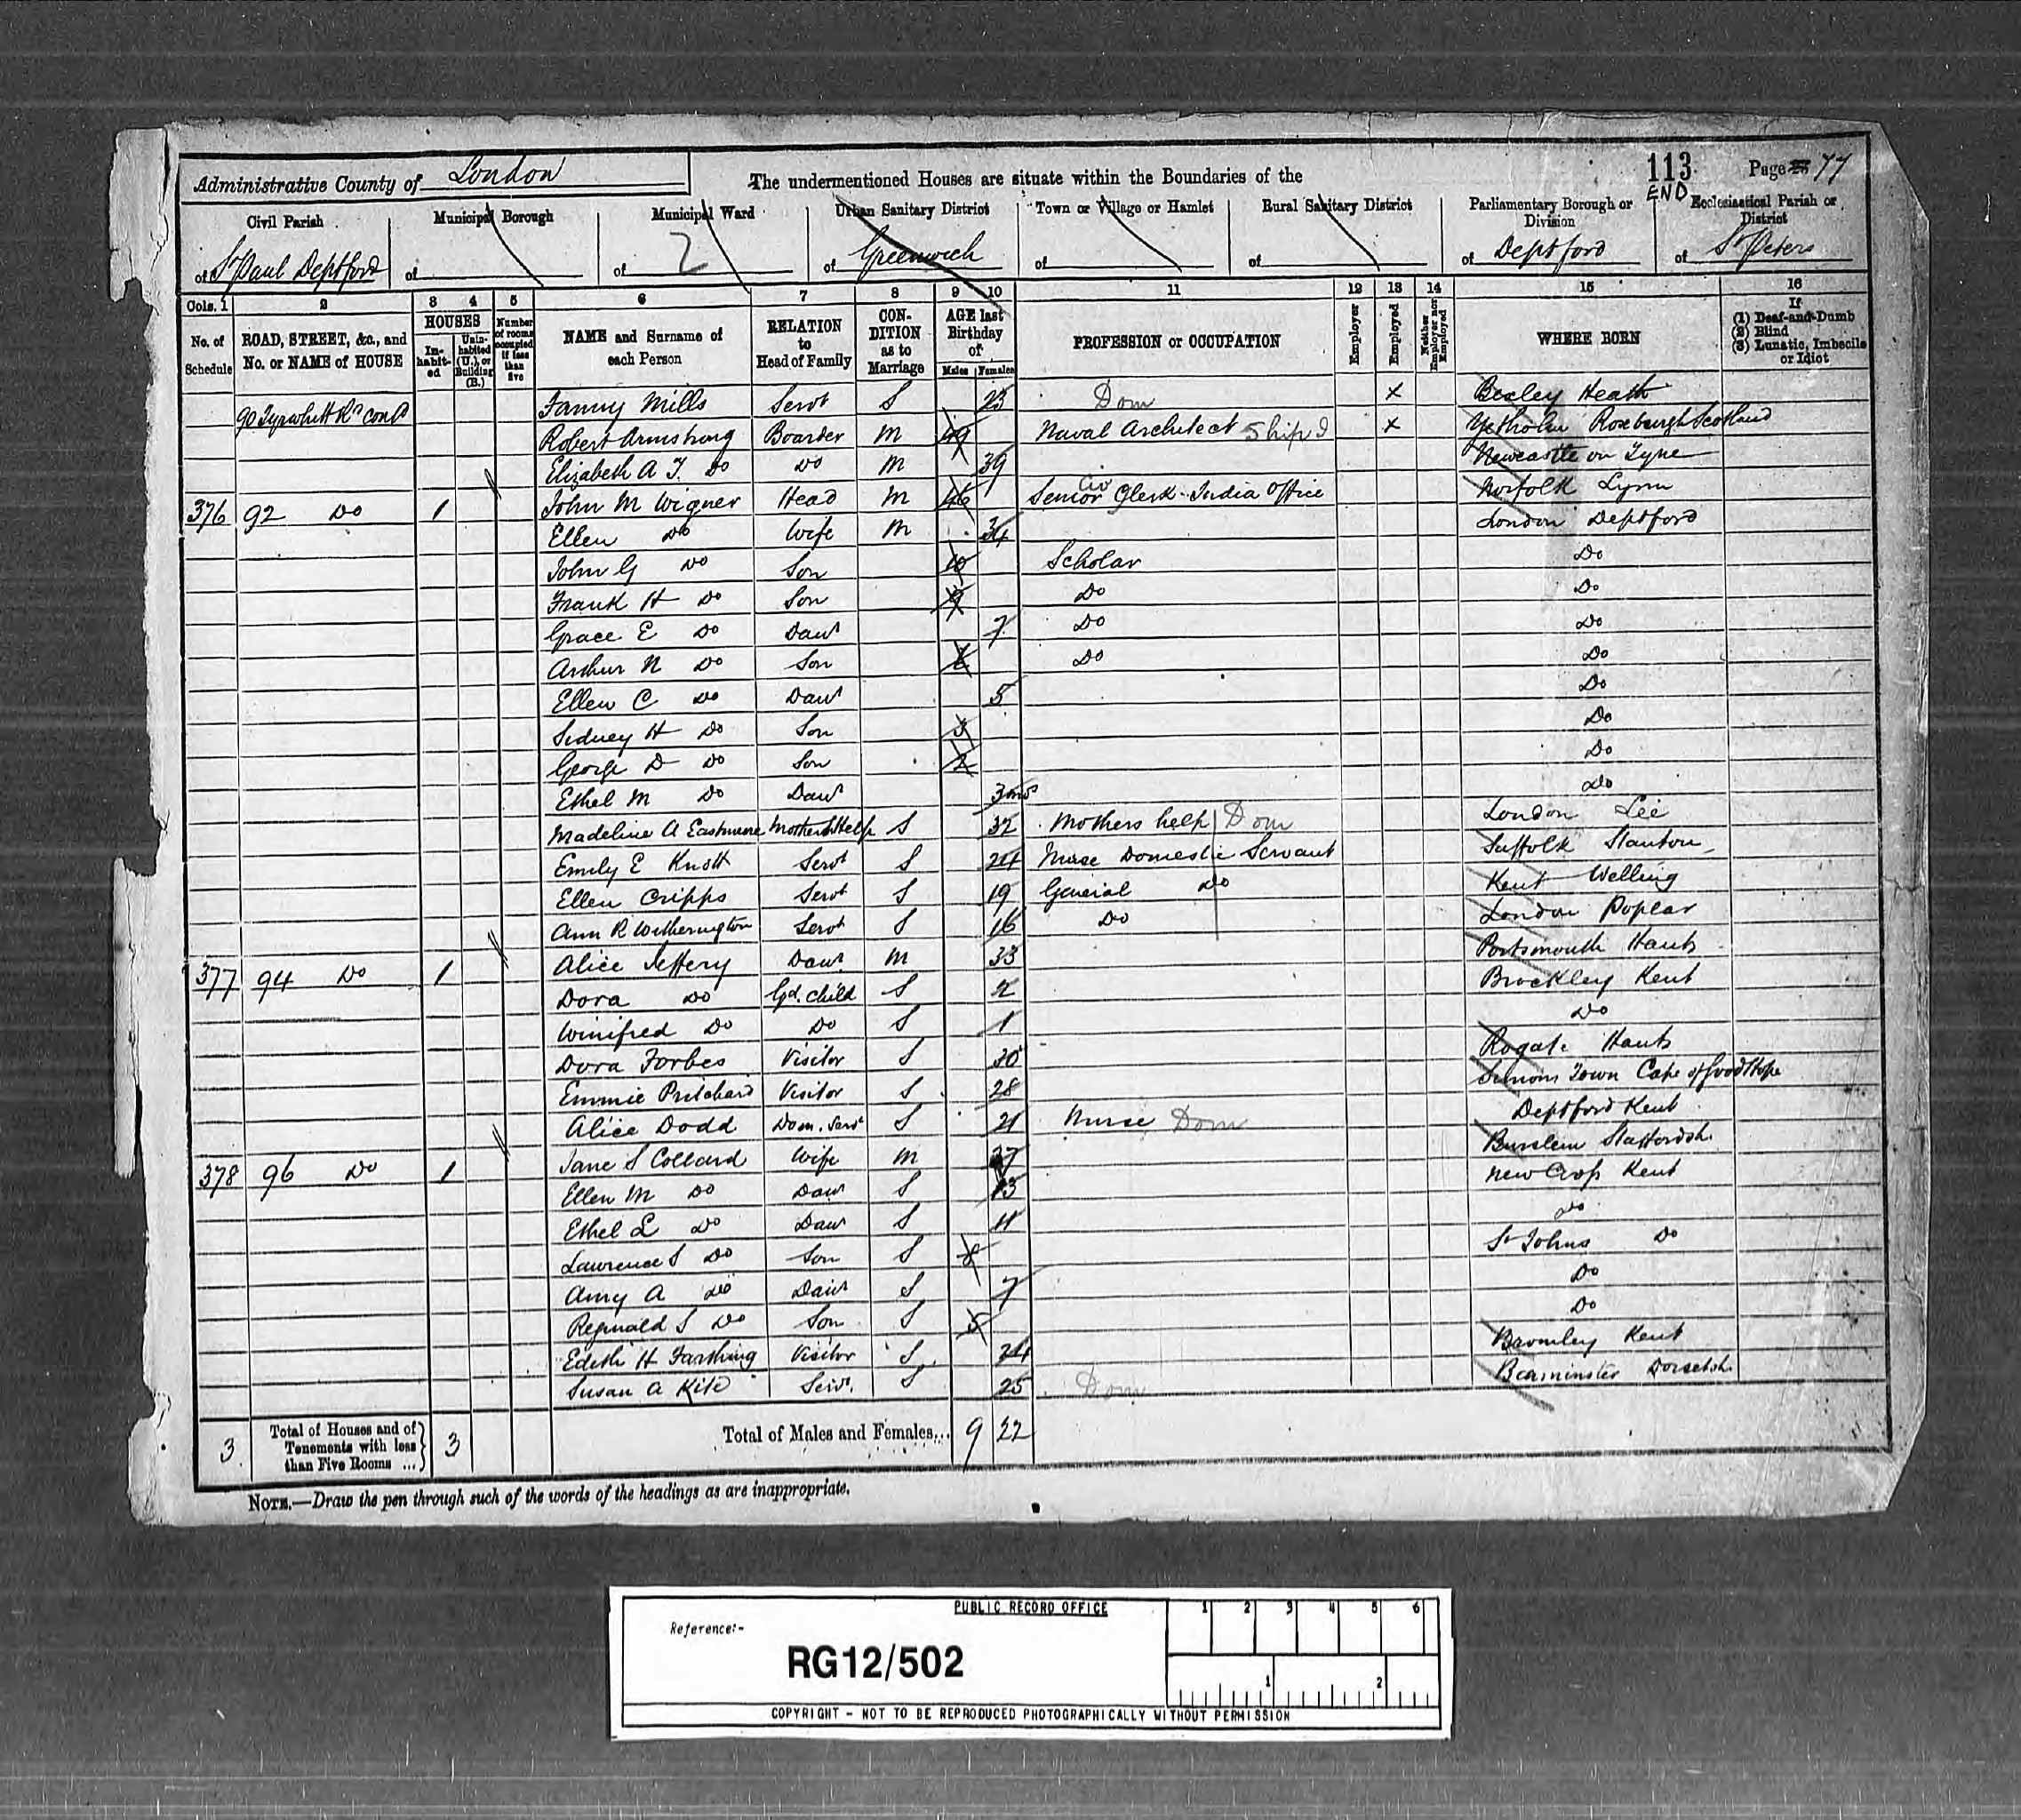 Administrative County of London
The undermentioned Houses are situate within the Boundaries of the
113
END
Page 77
Civil Parish
of St Paul Deptford
Municipal Borough
of
Municipal Ward
of 2
Urban Sanitary District
of Greenwich
Town or Village or Hamlet
of
Rural Sanitary District
of
Parliamentary Borough or Division
of Deptford
Ecclesiastical Parish or District
of St Peters
Cols. 1 2 3 4 5 6 7 8 9 10 11 12 13 14 15 16
No. of Schedule
ROAD, STREET, &c., and No. or NAME of HOUSE
HOUSES
In-habit-ed
Unin-habited (U.), or Building (B.)
Number of rooms occupied if less than five
NAME and Surname of each Person
RELATION to Head of Family
CON-DITION as to Marriage
AGE last Birthday of
Males Females
PROFESSION or OCCUPATION
Employer
Employed
Neither Employer nor Employed
WHERE BORN
If
(1) Deaf-and-Dumb
(2) Blind
(3) Lunatic, Imbecile or Idiot
90 Tyrwhitt Rd contd Fanny Mills Servt S 23 Dom x Bexley Heath
Robert Armstrong Boarder M 49 Naval Architect Ship x Yetholm Roxburgh Scotland
Elizabeth A T. Do Do M 39 Newcastle on Tyne
376 92 Do 1 John M Wigner Head M 46 Senior Civ Clerk India Office Norfolk Lynn
Ellen Do Wife M 34 London Deptford
John G Do Son 10 Scholar Do
Frank H Do Son 9 Do Do
Grace E Do Daur 7 Do Do
Arthur N Do Son Do Do
Ellen C Do Daur 5 Do
Sidney H Do Son 3 Do
George D Do Son 2 Do
Ethel M Do Daur 3mos Do
Madeline A Eastmure Mothers Help S 32 Mothers help Dom London Lee
Emily E Knott Servt S 24 Nurse Domestic Servant Suffolk Stanton
Ellen Cripps Servt S 19 General Do Kent Welling
Ann R Witherington Servt S 16 Do London Poplar
377 94 Do 1 Alice Jeffery Daur M 33 Portsmouth Hants
Dora Do Gd. Child S 2 Brockley Kent
Winifred Do Do S 1 Do
Dora Forbes Visitor S 20 Rogate Hants
Emmie Pritchard Visitor S 28 Simons Town Cape of Good Hope
Alice Dodd Dom. Servt S 21 Nurse Dom Deptford Kent
378 96 Do 1 Jane S Collard Wife M 37 Burslem Staffordsh.
Ellen M Do Daur S 13 New Cross Kent
Ethel L Do Daur S 11 Do
Lawrence S Do Son S 8 St Johns Do
Amy A Do Daur S 7 Do
Reginald S Do Son S 5 Do
Edith H Farthing Visitor S 24 Bromley Kent
Susan A Kite Servt. S 25 Dom Beaminster Dorsetsh.
3 Total of Houses and of Tenements with less than Five Rooms ... 3 Total of Males and Females... 9 22
NOTE.—Draw the pen through such of the words of the headings as are inappropriate.
PUBLIC RECORD OFFICE
1 2 3 4 5 6
Reference:-
RG12/502
1 2
COPYRIGHT - NOT TO BE REPRODUCED PHOTOGRAPHICALLY WITHOUT PERMISSION